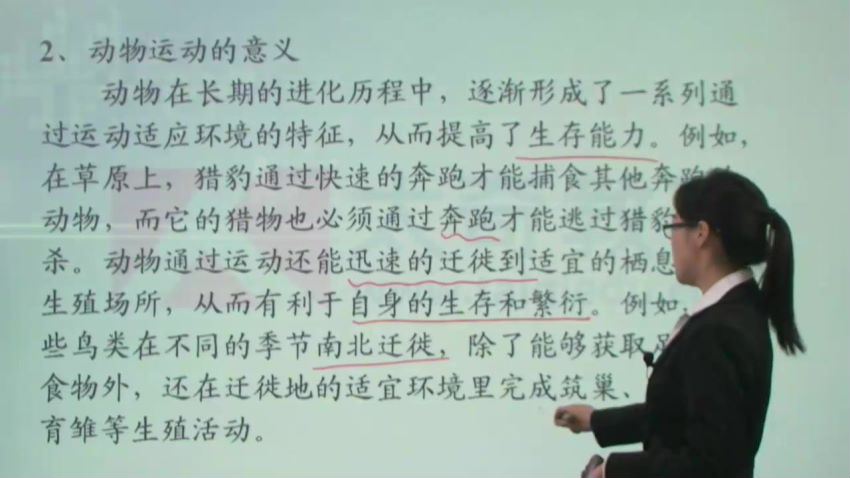 2、动物运动的意义
动物在长期的进化历程中，逐渐形成了一系列通
过运动适应环境的特征，从而提高了生存能力。例如，
在草原上，猎豹通过快速的奔跑才能捕食其他奔跑
动物，而它的猎物也必须通过奔跑才能逃过猎豹
杀。动物通过运动还能迅速的迁徙到适宜的栖息
生殖场所，从而有利于自身的生存和繁衍。例如，
些鸟类在不同的季节南北迁徙，除了能够获取
食物外，还在迁徙地的适宜环境里完成筑巢、
育雏等生殖活动。